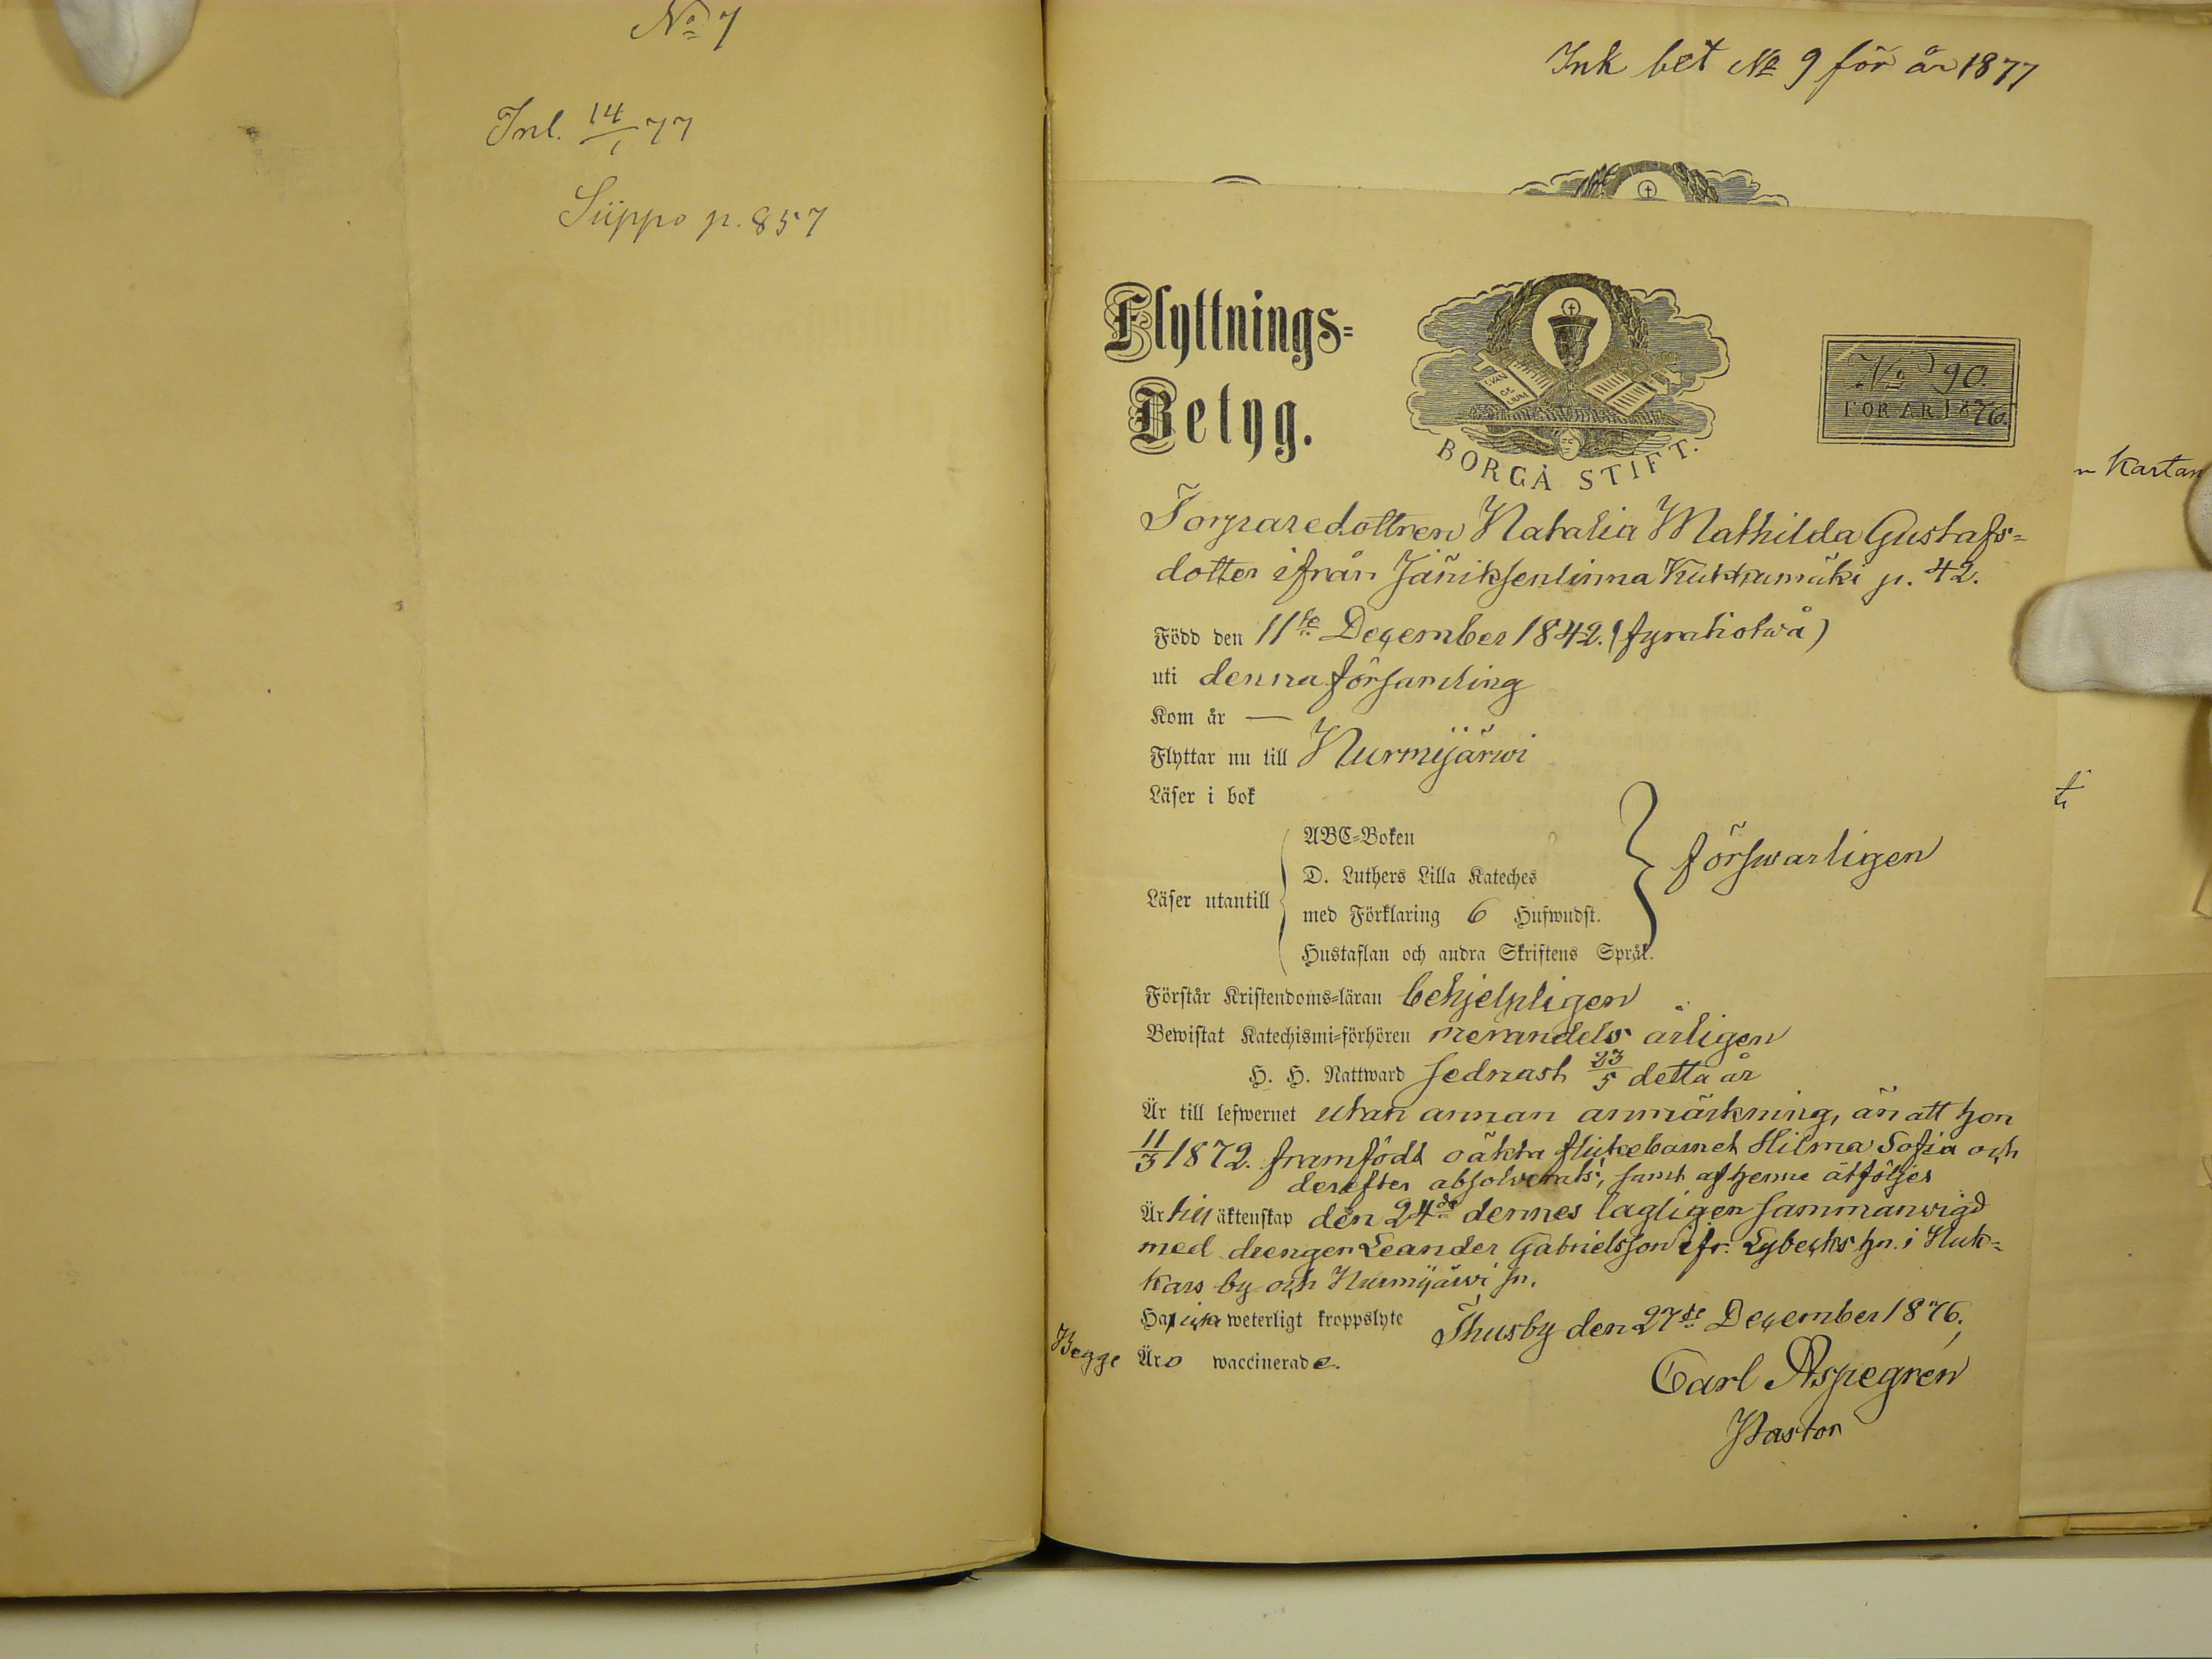 No 7
Inl. 14/1 77
Siippo p. 857
Ink bet No 9 för år 1877
Flyttnings=
Betyg.
EVAN GE LIUM
BORGÅ STIFT.
No 90.
FÖR ÅR 1876.
n Kartan
Torparedottren Natalia Mathilda Gustafs=
dotter ifrån Jäniksenlinna Kukkumäki p. 42.
Född den 11te December 1842. (fyratiotwå)
uti denna församling
Kom år —
Flyttar nu till Nurmijärwi
Läser i bok
ABC=Boken
D. Luthers Lilla Kateches
Läser utantill
med Förklaring 6 Hufwudst.
Hustaflan och andra Skriftens Språk.
förswarligen
Förstår Kristendoms=läran behjelpligen
Bewistat Katechismi=förhören merandels årligen
H. H. Nattward sednast 23/5 detta år
Är till lefwernet utan annan anmärkning, än att hon
11/3 1872. framfödt oäkta flickebarnet Hilma Sofia och
derefter absolverats, samt af henne åtföljes
Är till äktenskap den 24de dennes lagligen sammanwigd
med drengen Leander Gabrielsson ifr. Lybecks hn. i Nuk=
kars by och Nurmijärwi sn.
Har icke weterligt kroppslyte
Thusby den 27de December 1876.
Begge Äro waccinerade.
Carl Aspegren
Pastor